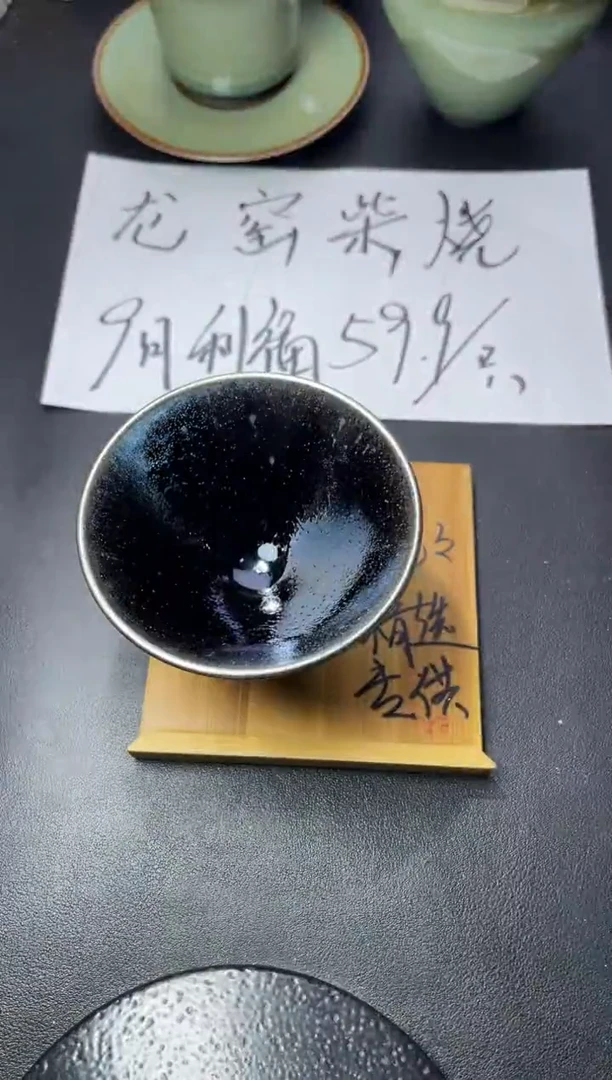 龙窑柴烧
9月利福59.9/只
精选